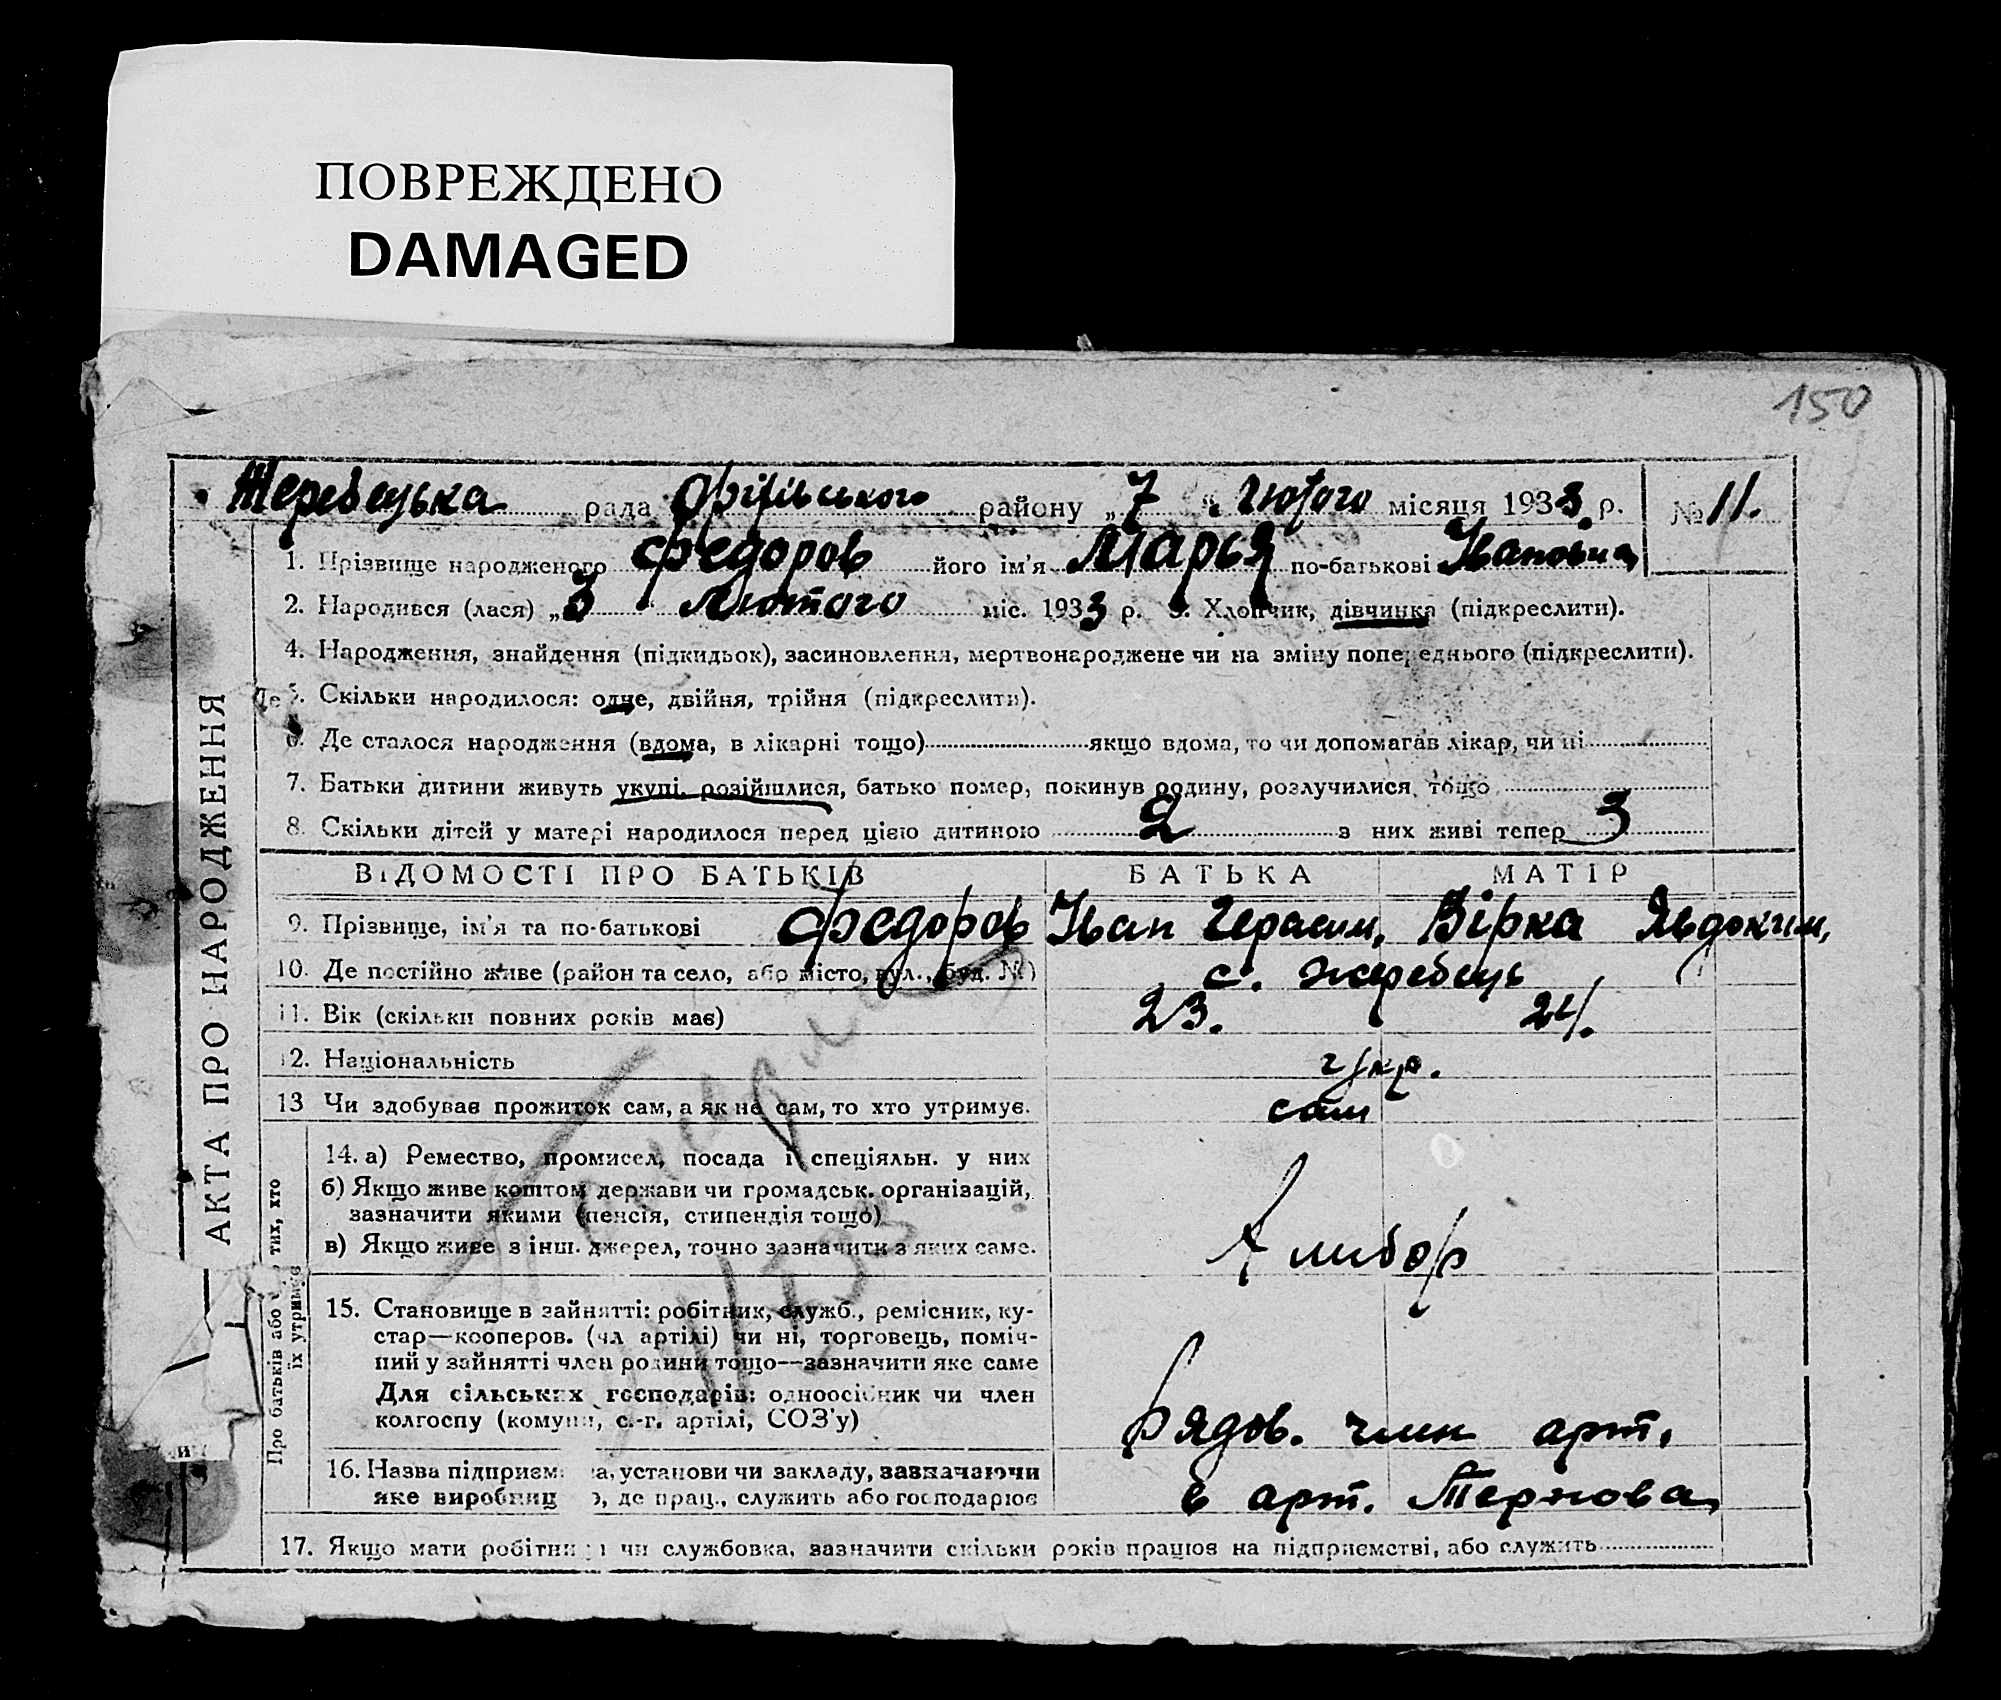 ПОВРЕЖДЕНО
DAMAGED
150
Жеребецька рада Оріхівського району „7“ Лютого місяця 1933 р. № 11.
АКТА ПРО НАРОДЖЕННЯ
1. Прізвище народженого Федоров його ім'я Марья по-батькові Івановна
2. Народився (лася) „3“ Лютого міс. 1933 р. 3. Хлопчик, дівчинка (підкреслити).
4. Народження, знайдення (підкидьок), засиновлення, мертвонароджене чи на зміну попереднього (підкреслити).
5. Скільки народилося: одне, двійня, трійня (підкреслити).
6. Де сталося народження (вдома, в лікарні тощо) якщо вдома, то чи допомагав лікар, чи ні
7. Батьки дитини живуть укупі, розійшлися, батько помер, покинув родину, розлучилися, тощо
8. Скільки дітей у матері народилося перед цією дитиною 2 з них живі тепер 3
ВІДОМОСТІ ПРО БАТЬКІВ БАТЬКА МАТІР
9. Прізвище, ім'я та по-батькові Федоров Іван Герасим, Вірка Явдоким,
10. Де постійно живе (район та село, або місто, вул., буд. №) с. Жеребець
11. Вік (скільки повних років має) 23. 24.
12. Національність Укр.
13 Чи здобував прожиток сам, а як не сам, то хто утримує. сам
Про батьків або тих, хто
їх утримує
14. а) Ремество, промисел, посада і спеціяльн. у них
б) Якщо живе коштом держави чи громадськ. організацій,
зазначити якими (пенсія, стипендія тощо)
в) Якщо живе з інш. джерел, точно зазначити з яких саме.
15. Становище в зайнятті: робітник, служб., ремісник, ку-
стар—кооперов. (чл артілі) чи ні, торговець, поміч-
ний у зайнятті член родини тощо—зазначити яке саме
Для сільських господарів: одноосібник чи член
колгоспу (комуни, с.-г. артілі, СОЗ'у)
Рядов. член арт.
16. Назва підприєм ва, установи чи закладу, зазначаючи
яке виробниц о, де прац., служить або господарює
в арт. Тернова
17. Якщо мати робітниця чи службовка, зазначити скільки років працює на підприємстві, або служить